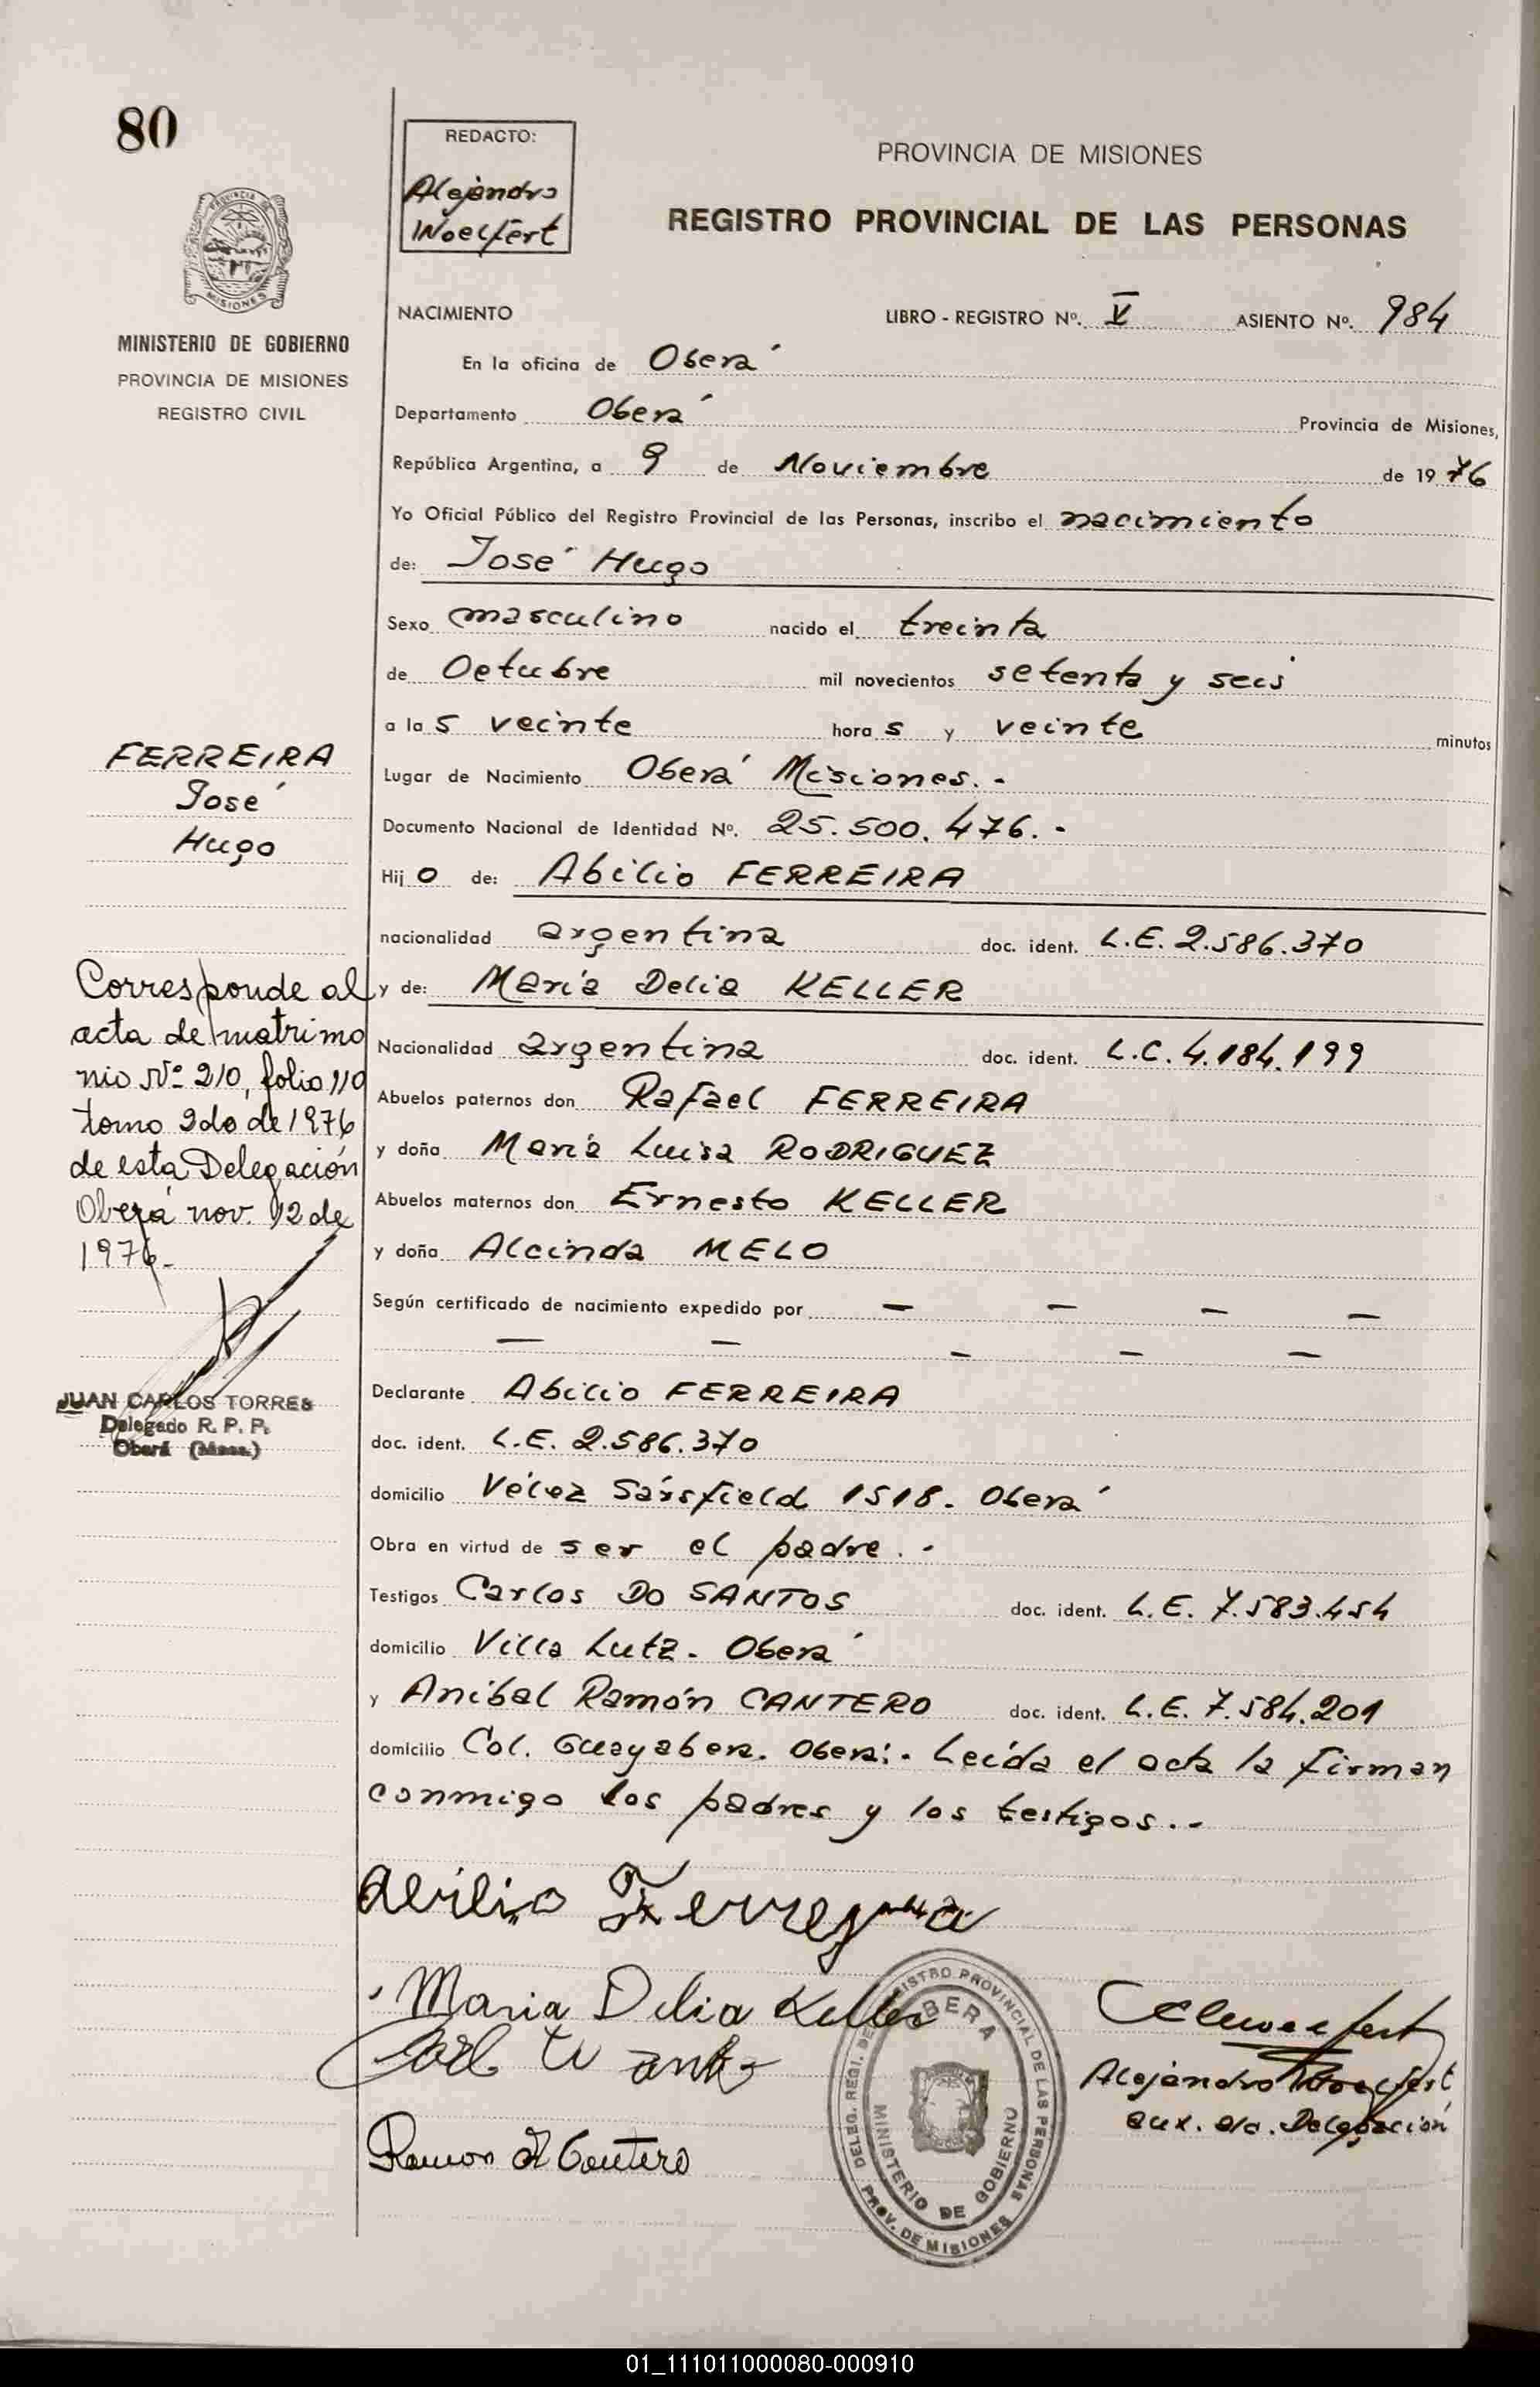 80
REDACTO:
Alejandro
Woelfert
PROVINCIA DE MISIONES
REGISTRO PROVINCIAL DE LAS PERSONAS
PROVINCIA DE
MISIONES
MINISTERIO DE GOBIERNO
PROVINCIA DE MISIONES
REGISTRO CIVIL
NACIMIENTO LIBRO - REGISTRO Nº. V ASIENTO Nº. 984
En la oficina de Oberá
Departamento Oberá Provincia de Misiones,
República Argentina, a 9 de Noviembre de 1976
Yo Oficial Público del Registro Provincial de las Personas, inscribo el nacimiento
de: José Hugo
Sexo masculino nacido el treinta
de Octubre mil novecientos setenta y seis
a las veinte horas y veinte minutos
Lugar de Nacimiento Oberá Misiones.-
Documento Nacional de Identidad Nº. 25.500.476.-
Hijo de: Abilio FERREIRA
nacionalidad argentina doc. ident. L.E. 2.586.370
y de: María Delia KELLER
Nacionalidad argentina doc. ident. L.C. 4.184.199
Abuelos paternos don Rafael FERREIRA
y doña María Luisa RODRIGUEZ
Abuelos maternos don Ernesto KELLER
y doña Alcinda MELO
Según certificado de nacimiento expedido por — — — —
— — — — —
Declarante Abilio FERREIRA
doc. ident. L.E. 2.586.370
domicilio Vélez Sársfield 1518. Oberá
Obra en virtud de ser el padre.-
Testigos Carlos DO SANTOS doc. ident. L.E. 7.583.454
domicilio Villa Lutz. Oberá
y Aníbal Ramón CANTERO doc. ident. L.E. 7.584.201
domicilio Col. Guayabera. Oberá.- Leída el acta la firman
conmigo los padres y los testigos.-
FERREIRA
José
Hugo
Corresponde al
acta de matrimo
nio Nº 210, folio 110
tomo 2do de 1976
de esta Delegación
Oberá nov. 12 de
1976.-
JUAN CARLOS TORRES
Delegado R. P. P.
Oberá (Mnes.)
Abilio Ferreira
Maria Delia Keller
Ramon A Cantero
Alejandro Woelfert
aux. a/c. Delegación
DELEG. REGI. DEL REGISTRO PROVINCIAL DE LAS PERSONAS
OBERA
MINISTERIO DE GOBIERNO
PROV. DE MISIONES
01_111011000080-000910